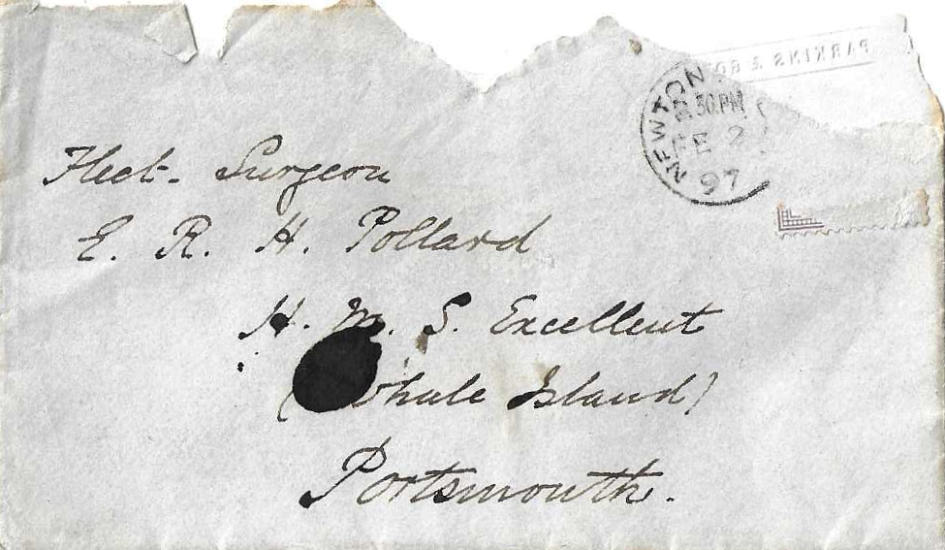 PARKINS &
NEWTON
30 PM
FE 2
97
Fleet-Surgeon
E. R. H. Pollard
H. M. S. Excellent
(Whale Island)
Portsmouth.